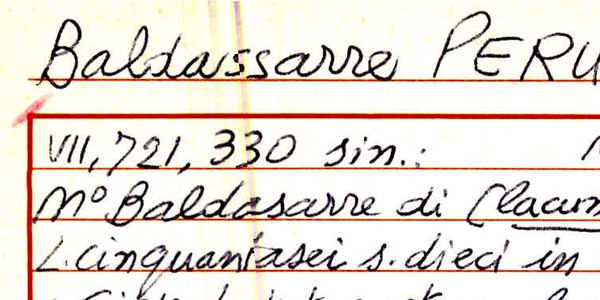 Baldassarre PERU
VII, 721, 330 sin.:
Mº Baldasarre di (lacun
L. cinquantasei s. dieci in